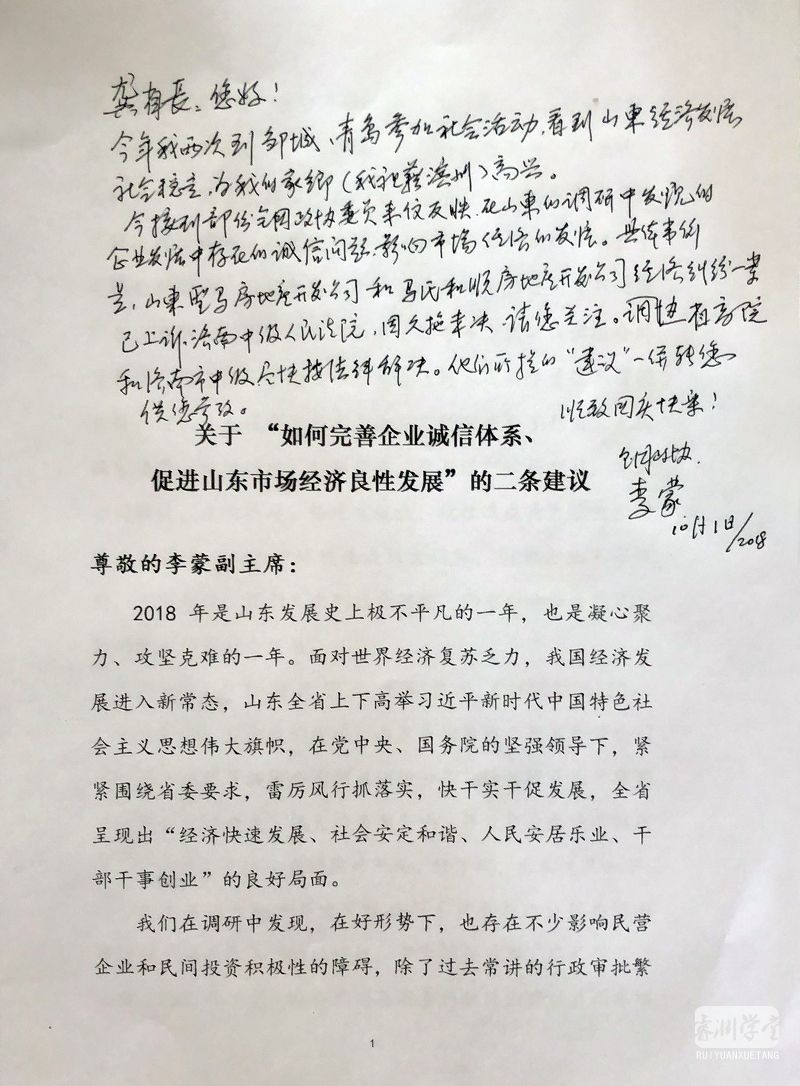 龚省長：您好！
今年我两次到邹城、青岛参加社会活动，看到山東经济发展
社会稳定，为我的家鄉（我祖籍滨州）高兴。
今接到部份全国政协委员来信反映，在山東的调研中发现的
企业发展中存在的诚信问题，影响市场经济的发展。具体事例
是，山東 房地産开发公司和 和順房地産开发公司经济纠纷一案
已上诉济南中级人民法院，因久拖未决，请您关注。调协省高院
和济南市中级尽快按法律解决。他们所提的“建议”一併转您
供您参改。
順致国庆快乐！
关于 “如何完善企业诚信体系、
促进山东市场经济良性发展”的二条建议
全国政协
李蒙
10月1日/2018
尊敬的李蒙副主席：
2018 年是山东发展史上极不平凡的一年，也是凝心聚
力、攻坚克难的一年。面对世界经济复苏乏力，我国经济发
展进入新常态，山东全省上下高举习近平新时代中国特色社
会主义思想伟大旗帜，在党中央、国务院的坚强领导下，紧
紧围绕省委要求，雷厉风行抓落实，快干实干促发展，全省
呈现出“经济快速发展、社会安定和谐、人民安居乐业、干
部干事创业”的良好局面。
我们在调研中发现，在好形势下，也存在不少影响民营
企业和民间投资积极性的障碍，除了过去常讲的行政审批繁
1
睿渊学堂
RUIYUANXUETANG